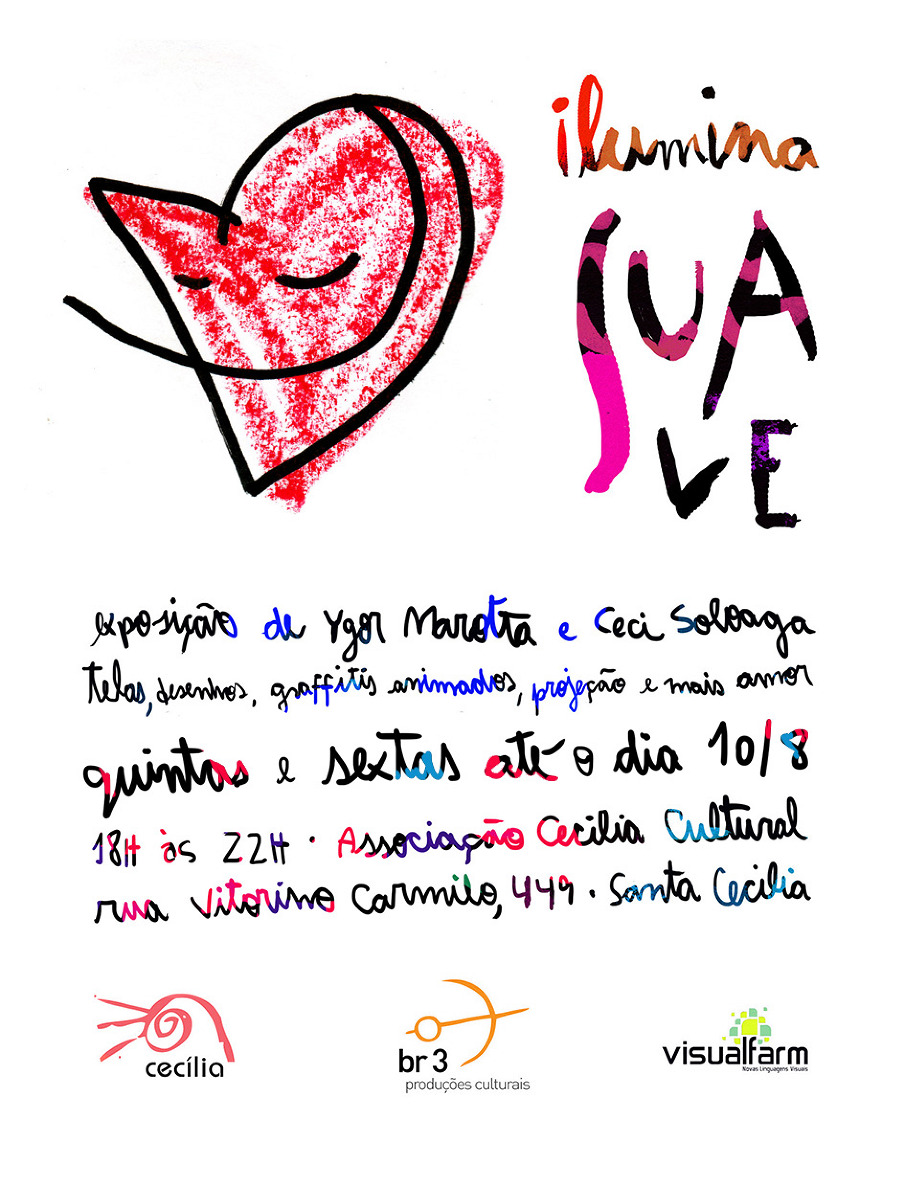 ilumina
SUAVE
exposição de Ygor Marotta e Ceci Soloaga
telas, desenhos, graffitis animados, projeção e mais amor
quintas e sextas até o dia 10/8
18H às 22H · Associação Cecilia Cultural
rua Vitorino Carmilo, 449 · Santa Cecilia
cecília
br3
produções culturais
visualfarm
Novas Linguagens Visuais